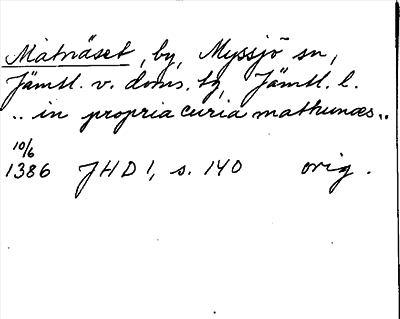 Måtnäset, by, Myssjö sn,
Jämtl. v. doms. tg, Jämtl. l.
.. in propria curia mathunæs ..
10/6
1386 JHD 1, s. 140 orig.